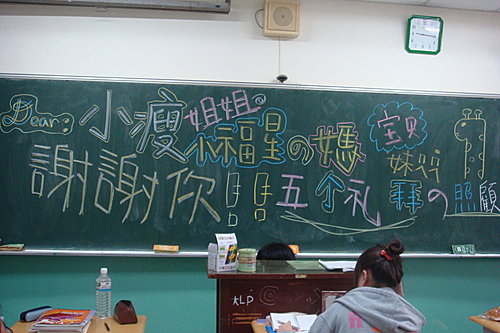 Dear 小瘦姐姐。小福星の媽 宝贝
謝謝你!! 五个礼拜の照顧
LP